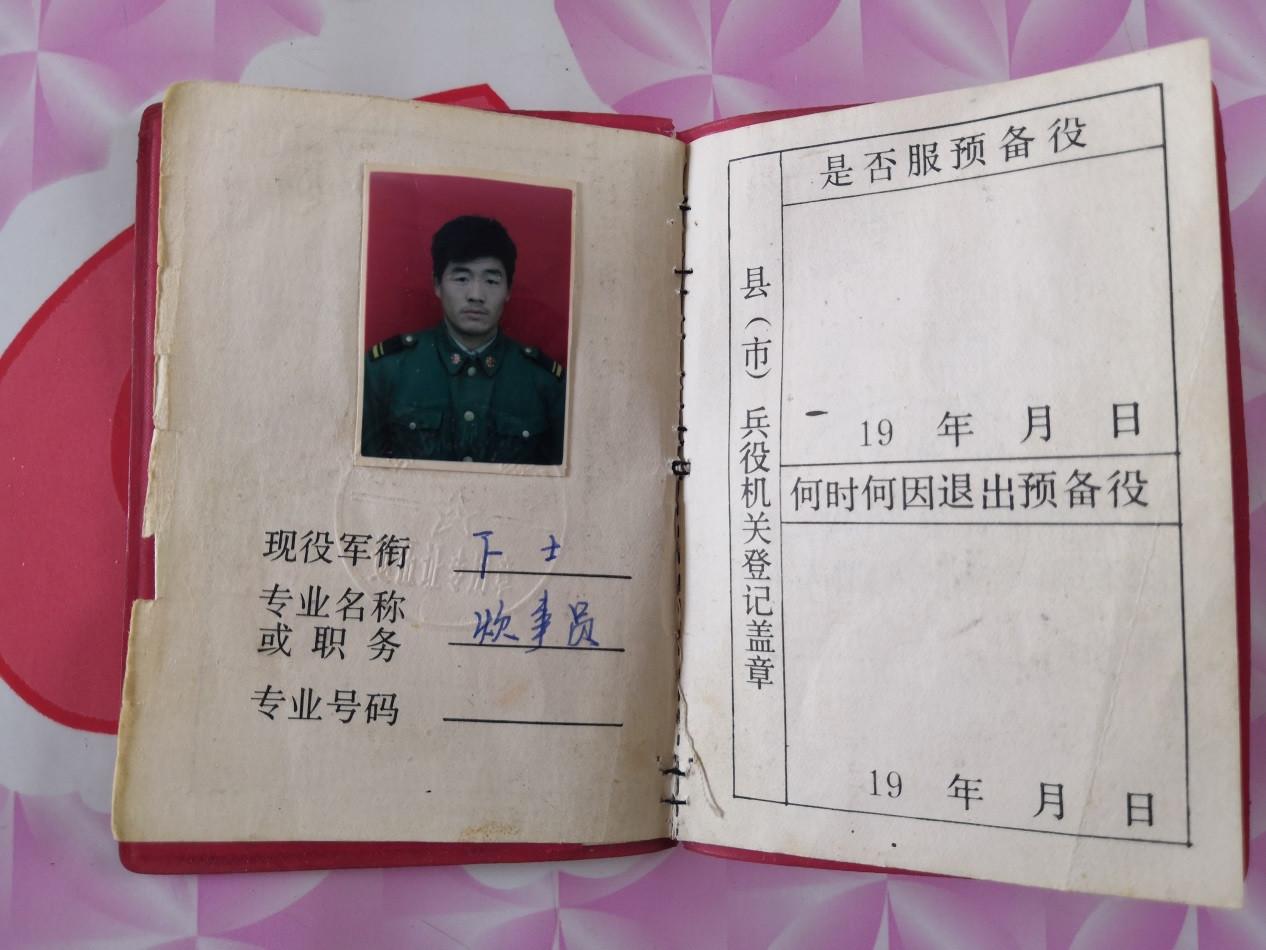 现役军衔 下士
专业名称
或职务 炊事员
专业号码
县（市）兵役机关登记盖章
是否服预备役
19 年 月 日
何时何因退出预备役
19 年 月 日